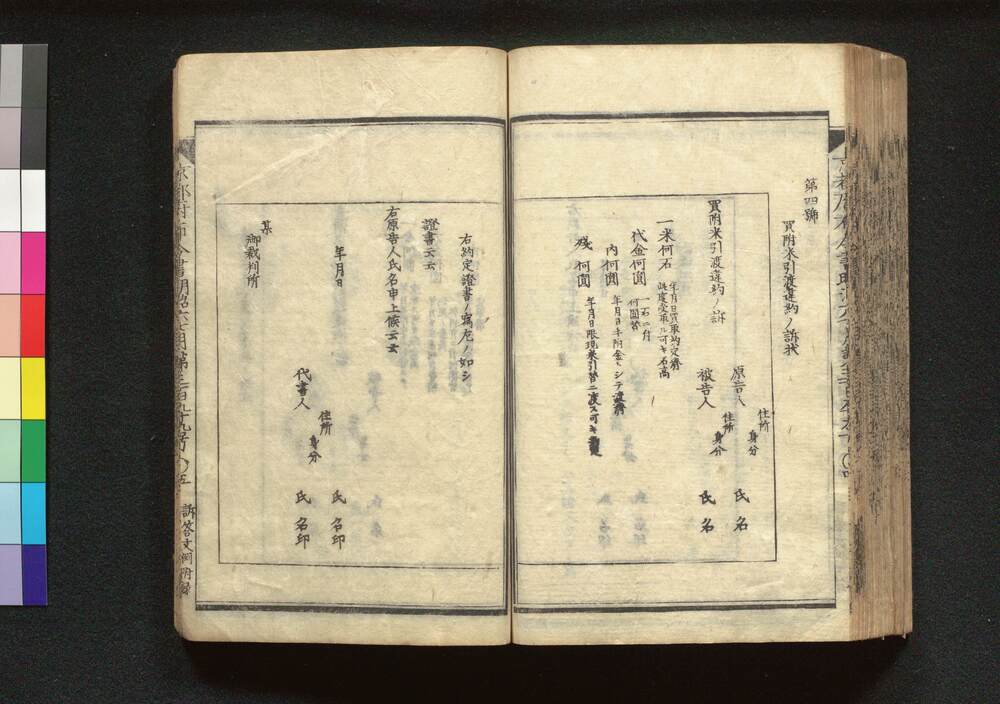 第四號
買附米引渡違約ノ訴状
買附米引渡違約ノ訴
原告人 住所 身分 氏名
被告人 住所 身分 氏名
一米何石 年月日買取約定濟
此度受取ル可キ石高
代金何圓 一石ニ付
何圓替
内何圓 年月日手附金トシテ渡濟
殘何圓 年月日限現米引替ニ渡ス可キ
右約定證書ノ寫左ノ如シ
證書云云
右原告人氏名申上候云云
年月日 住所 身分 氏名印
代書人 氏名印
某
御裁判所
京都府布令書明治六七月第三百九十九号
五
訴答文例附録